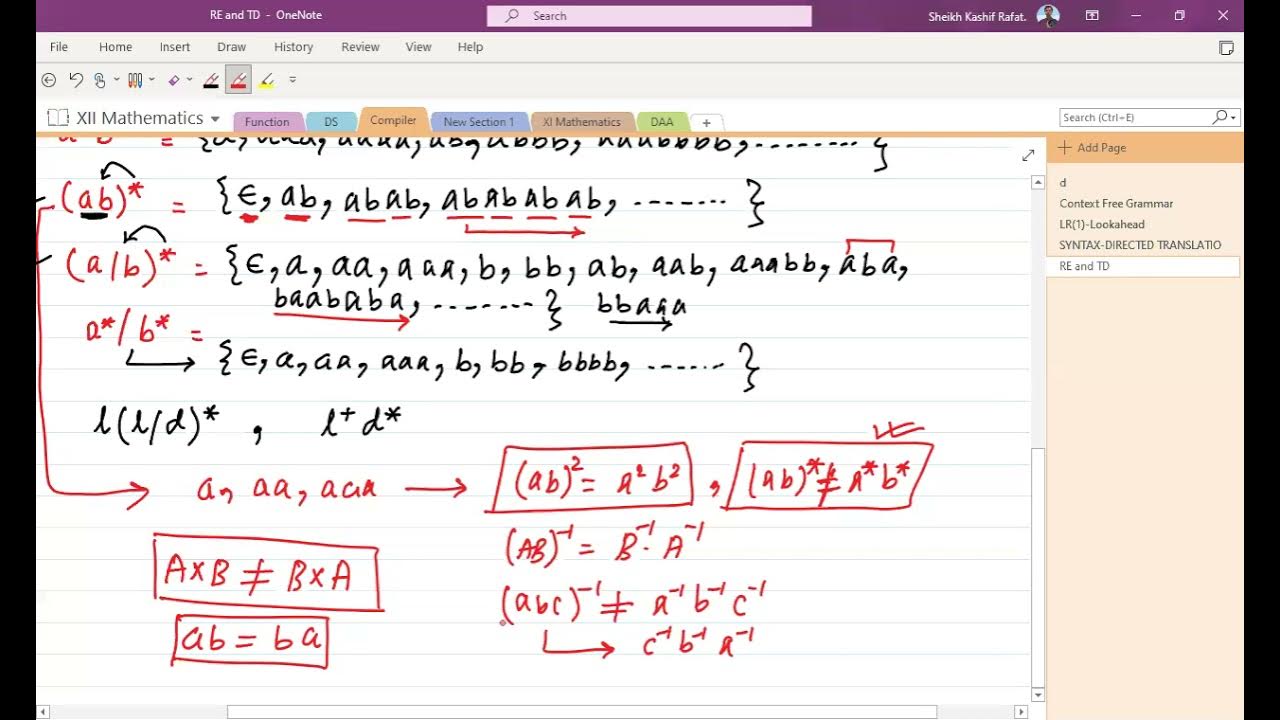 RE and TD - OneNote
Search
Sheikh Kashif Rafat.
File Home Insert Draw History Review View Help
XII Mathematics Function DS Compiler New Section 1 XI Mathematics DAA +
Search (Ctrl+E)
Add Page
d
Context Free Grammar
LR(1)-Lookahead
SYNTAX-DIRECTED TRANSLATIO
RE and TD
(ab)* = {ϵ, ab, abab, abababab, ........ }
(a/b)* = {ϵ, a, aa, aaa, b, bb, ab, aab, aaabb, aba,
baababa, ......... } bbaaa
a*/b* =
{ϵ, a, aa, aaa, b, bb, bbbb, ....... }
l(l/d)* , l⁺d*
a, aa, aaa → (ab)² = a²b² , (ab)* ≠ a*b*
(AB)⁻¹ = B⁻¹. A⁻¹
A×B ≠ B×A
(abc)⁻¹ ≠ a⁻¹ b⁻¹ c⁻¹
ab = ba
c⁻¹ b⁻¹ a⁻¹